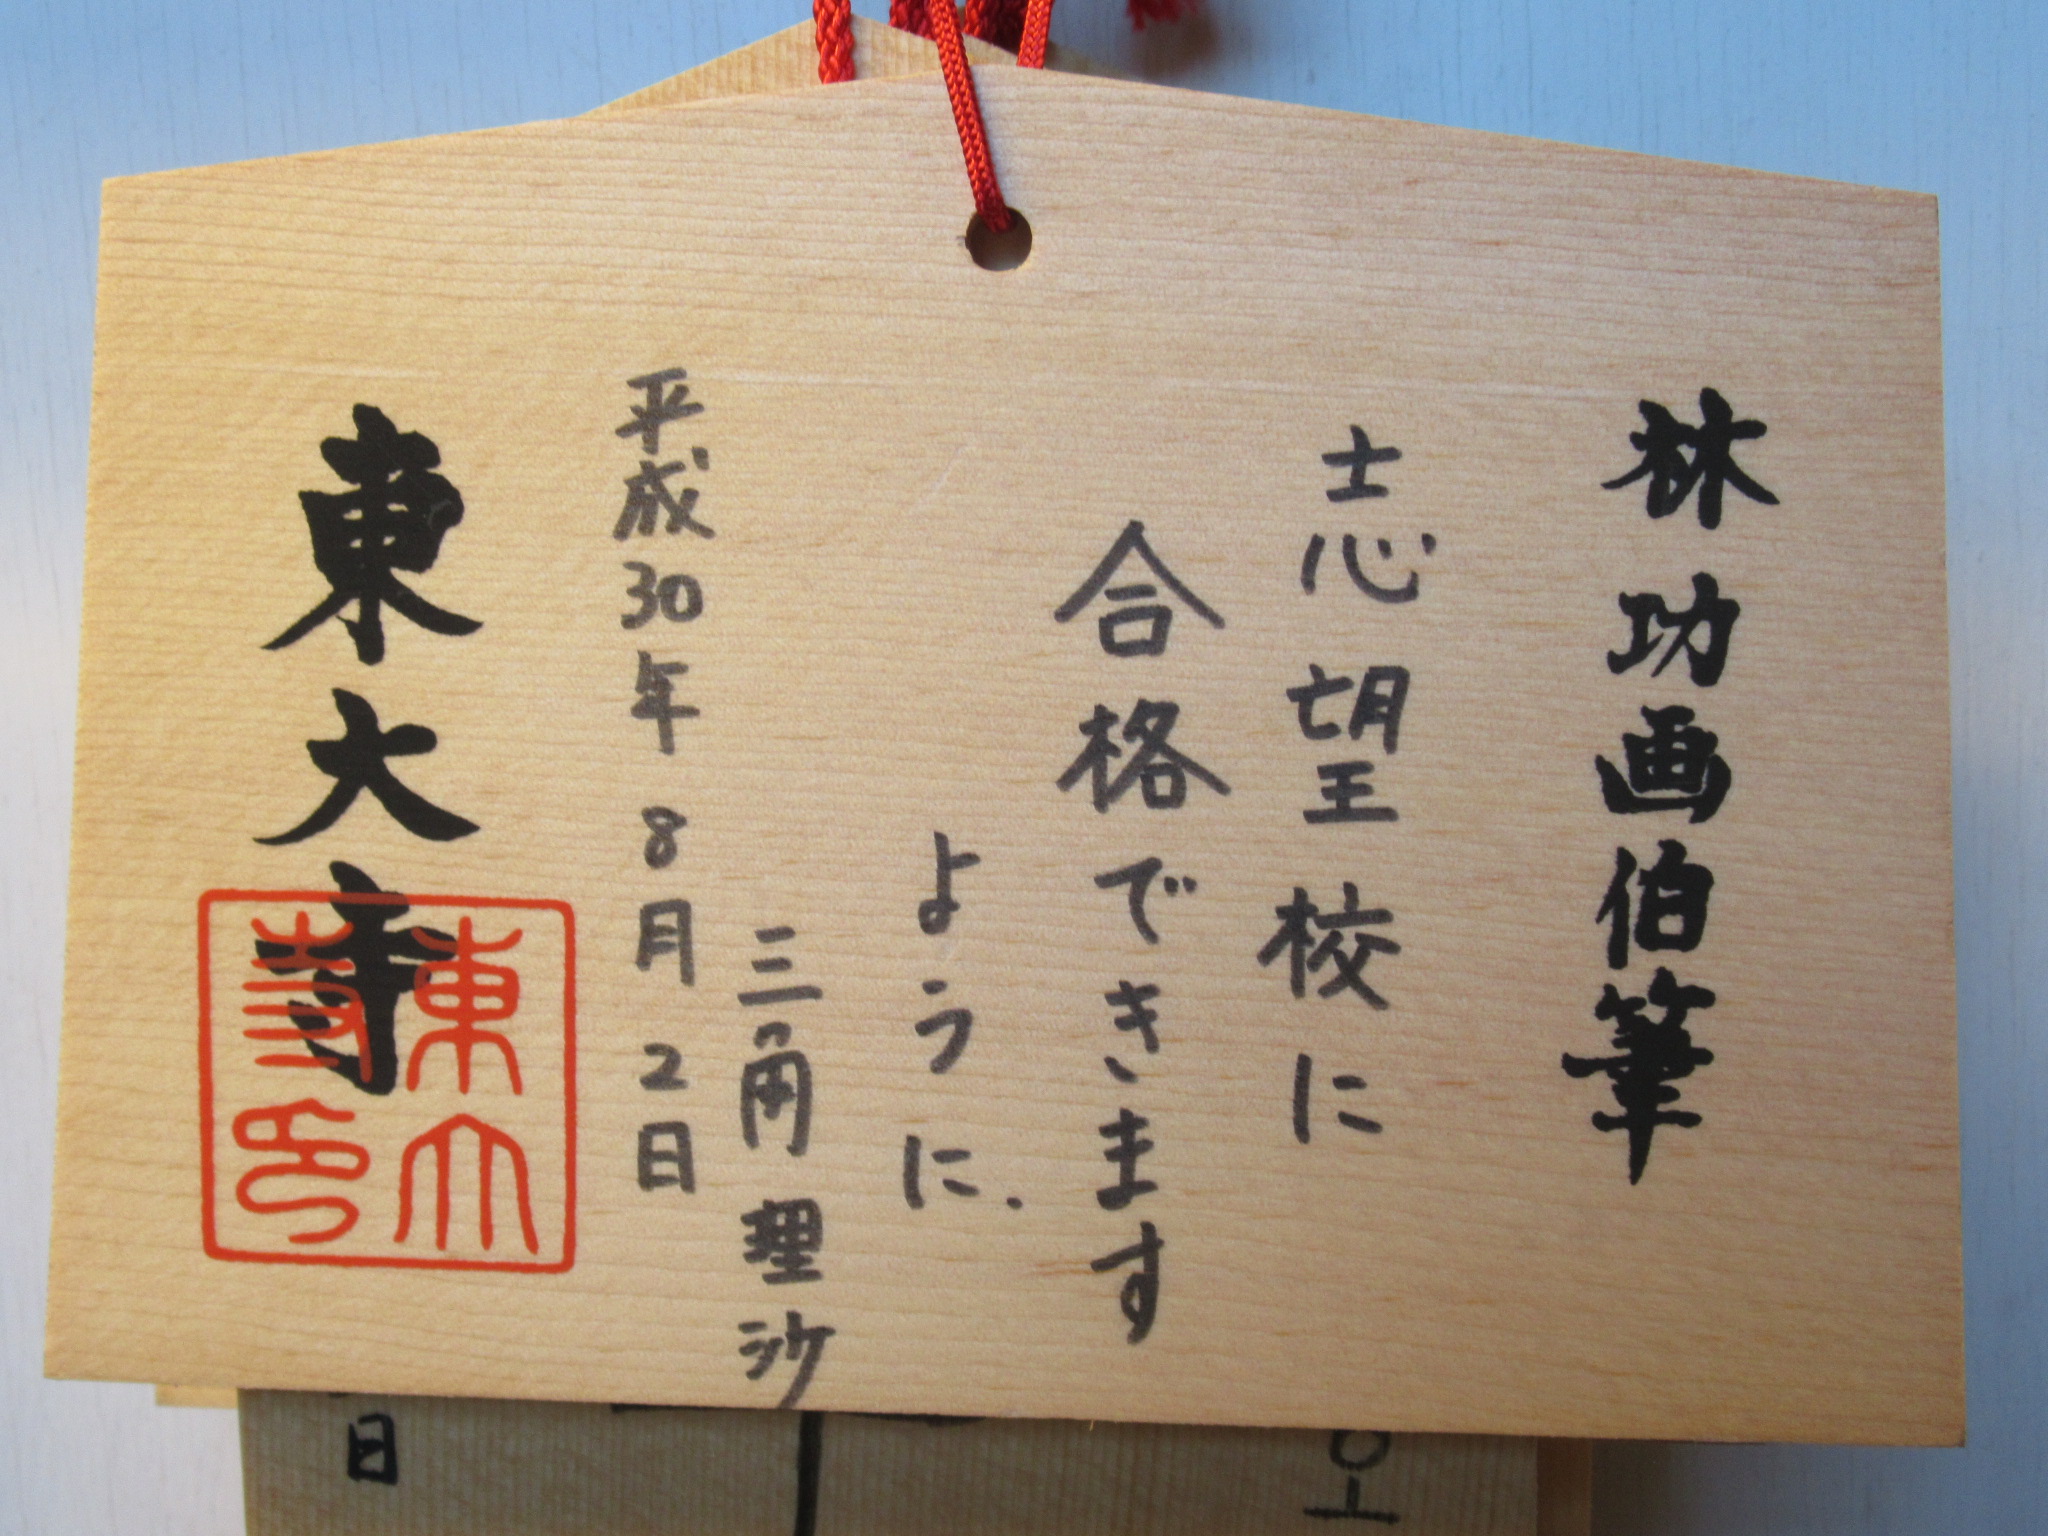 林功画伯筆
志望校に
合格できます
ように.
三角理沙
平成30年8月2日
東大寺
東大
寺印
日